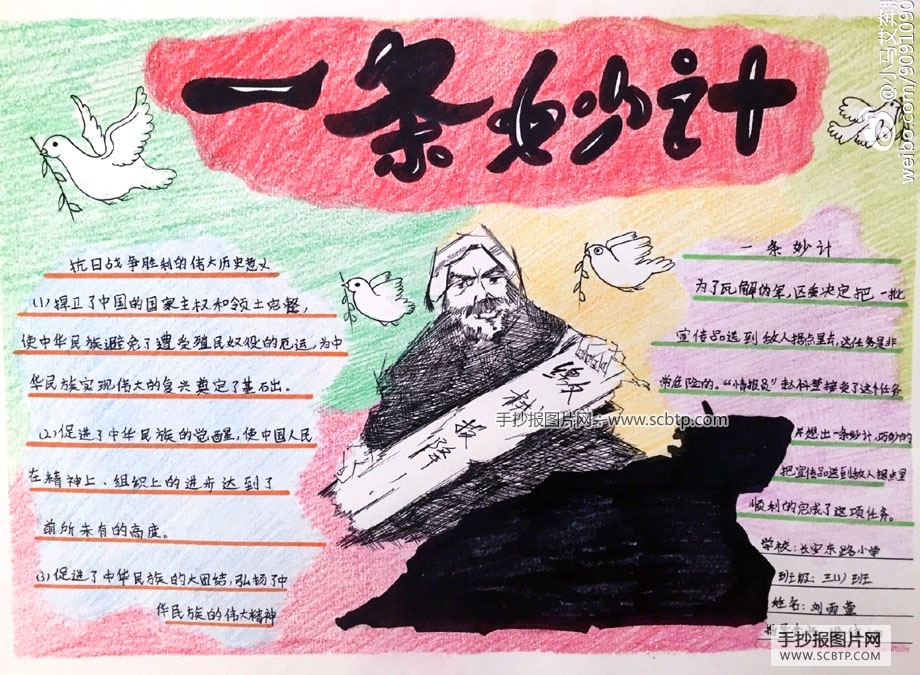 一条妙计
@小马艾奔腾
weibo.com/9091090
抗日战争胜利的伟大历史意义
(1)捍卫了中国的国家主权和领土完整,
使中华民族避免了遭受殖民奴役的厄运,为中
华民族实现伟大的复兴奠定了基础。
(2)促进了中华民族的觉醒,使中国人民
在精神上、组织上的进步达到了
前所未有的高度。
(3)促进了中华民族的大团结,弘扬了中
华民族的伟大精神
缴枪
投降
手抄报图片网:www.scbtp.com
一条妙计
为了瓦解伪军,区委决定把一批
宣传品送到敌人据点里去,这任务是非
常危险的。"情报员"赵科堂接受了这个任务
并想出一条妙计,巧妙的
把宣传品送到敌人据点里
顺利的完成了这项任务。
学校:长安东路小学
班级:三(1)班
姓名:刘雨萱
手抄报图片网
WWW.SCBTP.COM